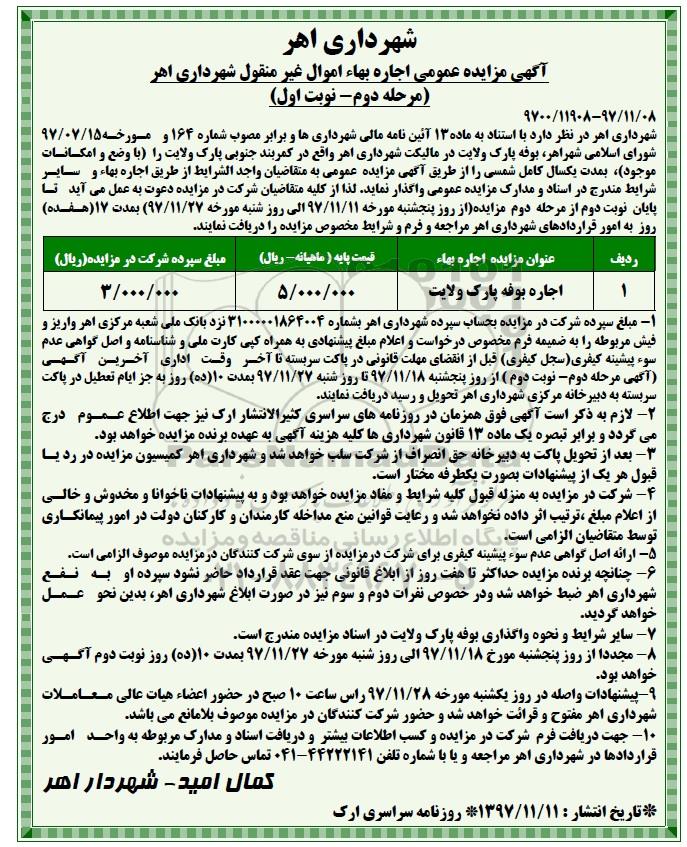 شهرداری اهر
آگهی مزایده عمومی اجاره بهاء اموال غیر منقول شهرداری اهر
(مرحله دوم- نوبت اول)
۹۷۰۰/۱۱۹۰۸-۹۷/۱۱/۰۸
شهرداری اهر در نظر دارد با استناد به ماده۱۳ آئین نامه مالی شهرداری ها و برابر مصوب شماره ۱۶۴ و مورخه۹۷/۰۷/۱۵
شورای اسلامی شهراهر، بوفه پارک ولایت در مالکیت شهرداری اهر واقع در کمربند جنوبی پارک ولایت را (با وضع و امکانات
موجود)، بمدت یکسال کامل شمسی را از طریق آگهی مزایده عمومی به متقاضیان واجد الشرایط از طریق اجاره بهاء و سایر
شرایط مندرج در اسناد و مدارک مزایده عمومی واگذار نماید. لذا از کلیه متقاضیان شرکت در مزایده دعوت به عمل می آید تا
پایان نوبت دوم از مرحله دوم مزایده(از روز پنجشنبه مورخه ۹۷/۱۱/۱۱ الی روز شنبه مورخه ۹۷/۱۱/۲۷) بمدت ۱۷(هفده)
روز به امور قراردادهای شهرداری اهر مراجعه و فرم و شرایط مخصوص مزایده را دریافت نمایند.
ردیف عنوان مزایده اجاره بهاء قیمت پایه ( ماهیانه- ریال) مبلغ سپرده شرکت در مزایده(ریال)
۱ اجاره بوفه پارک ولایت ۵/۰۰۰/۰۰۰ ۳/۰۰۰/۰۰۰
۱- مبلغ سپرده شرکت در مزایده بحساب سپرده شهرداری اهر بشماره ۳۱۰۰۰۰۱۸۶۴۰۰۴ نزد بانک ملی شعبه مرکزی اهر واریز و
فیش مربوطه را به ضمیمه فرم مخصوص درخواست و اعلام مبلغ پیشنهادی به همراه کپی کارت ملی و شناسنامه و اصل گواهی عدم
سوء پیشینه کیفری(سجل کیفری) قبل از انقضای مهلت قانونی در پاکت سربسته تا آخر وقت اداری آخرین آگهی
(آگهی مرحله دوم- نوبت دوم ) از روز پنجشنبه ۹۷/۱۱/۱۸ تا روز شنبه ۹۷/۱۱/۲۷ بمدت ۱۰(ده) روز به جز ایام تعطیل در پاکت
سربسته به دبیرخانه مرکزی شهرداری اهر تحویل و رسید دریافت نمایند.
۲- لازم به ذکر است آگهی فوق همزمان در روزنامه های سراسری کثیرالانتشار ارک نیز جهت اطلاع عموم درج
می گردد و برابر تبصره یک ماده ۱۳ قانون شهرداری ها کلیه هزینه آگهی به عهده برنده مزایده خواهد بود.
۳- بعد از تحویل پاکت به دبیرخانه حق انصراف از شرکت سلب خواهد شد و شهرداری اهر کمیسیون مزایده در رد یا
قبول هر یک از پیشنهادات بصورت یکطرفه مختار است.
۴- شرکت در مزایده به منزله قبول کلیه شرایط و مفاد مزایده خواهد بود و به پیشنهادات ناخوانا و مخدوش و خالی
از اعلام مبلغ ،ترتیب اثر داده نخواهد شد و رعایت قوانین منع مداخله کارمندان و کارکنان دولت در امور پیمانکاری
توسط متقاضیان الزامی است.
۵- ارائه اصل گواهی عدم سوء پیشینه کیفری برای شرکت درمزایده از سوی شرکت کنندگان درمزایده موصوف الزامی است.
۶- چنانچه برنده مزایده حداکثر تا هفت روز از ابلاغ قانونی جهت عقد قرارداد حاضر نشود سپرده او به نفع
شهرداری اهر ضبط خواهد شد ودر خصوص نفرات دوم و سوم نیز در صورت ابلاغ شهرداری اهر، بدین نحو عمل
خواهد گردید.
۷- سایر شرایط و نحوه واگذاری بوفه پارک ولایت در اسناد مزایده مندرج است.
۸- مجددا از روز پنجشنبه مورخ ۹۷/۱۱/۱۸ الی روز شنبه مورخه ۹۷/۱۱/۲۷ بمدت ۱۰(ده) روز نوبت دوم آگهی
خواهد بود.
۹-پیشنهادات واصله در روز یکشنبه مورخه ۹۷/۱۱/۲۸ راس ساعت ۱۰ صبح در حضور اعضاء هیات عالی معاملات
شهرداری اهر مفتوح و قرائت خواهد شد و حضور شرکت کنندگان در مزایده موصوف بلامانع می باشد.
۱۰- جهت دریافت فرم شرکت در مزایده و کسب اطلاعات بیشتر و دریافت اسناد و مدارک مربوطه به واحد امور
قراردادها در شهرداری اهر مراجعه و یا با شماره تلفن ۴۴۲۲۲۱۴۱-۰۴۱ تماس حاصل فرمایند.
کمال امید- شهردار اهر
*تاریخ انتشار : ۱۳۹۷/۱۱/۱۱* روزنامه سراسری ارک